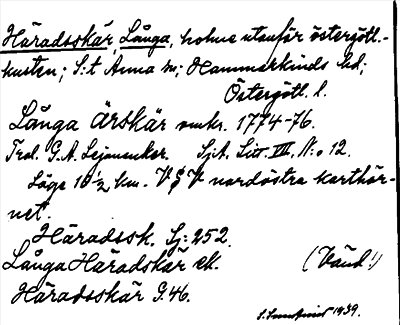 Häradsskär, Långa, holme utanför östergötl.-
kusten; S:t Anna sn; Hammarkinds hd;
Östergötl. l.
Långa Ärskär omkr. 1774-76.
Trol. G. A. Lejonancker. Sjk. Litt. VII, N:o 12.
Läge 10 ½ km. V§V nordöstra karthör-
net.
Häradssk. Sj: 252.
Långa Häradskär ek. (Vänd!)
Häradsskär G. 46.
1939.